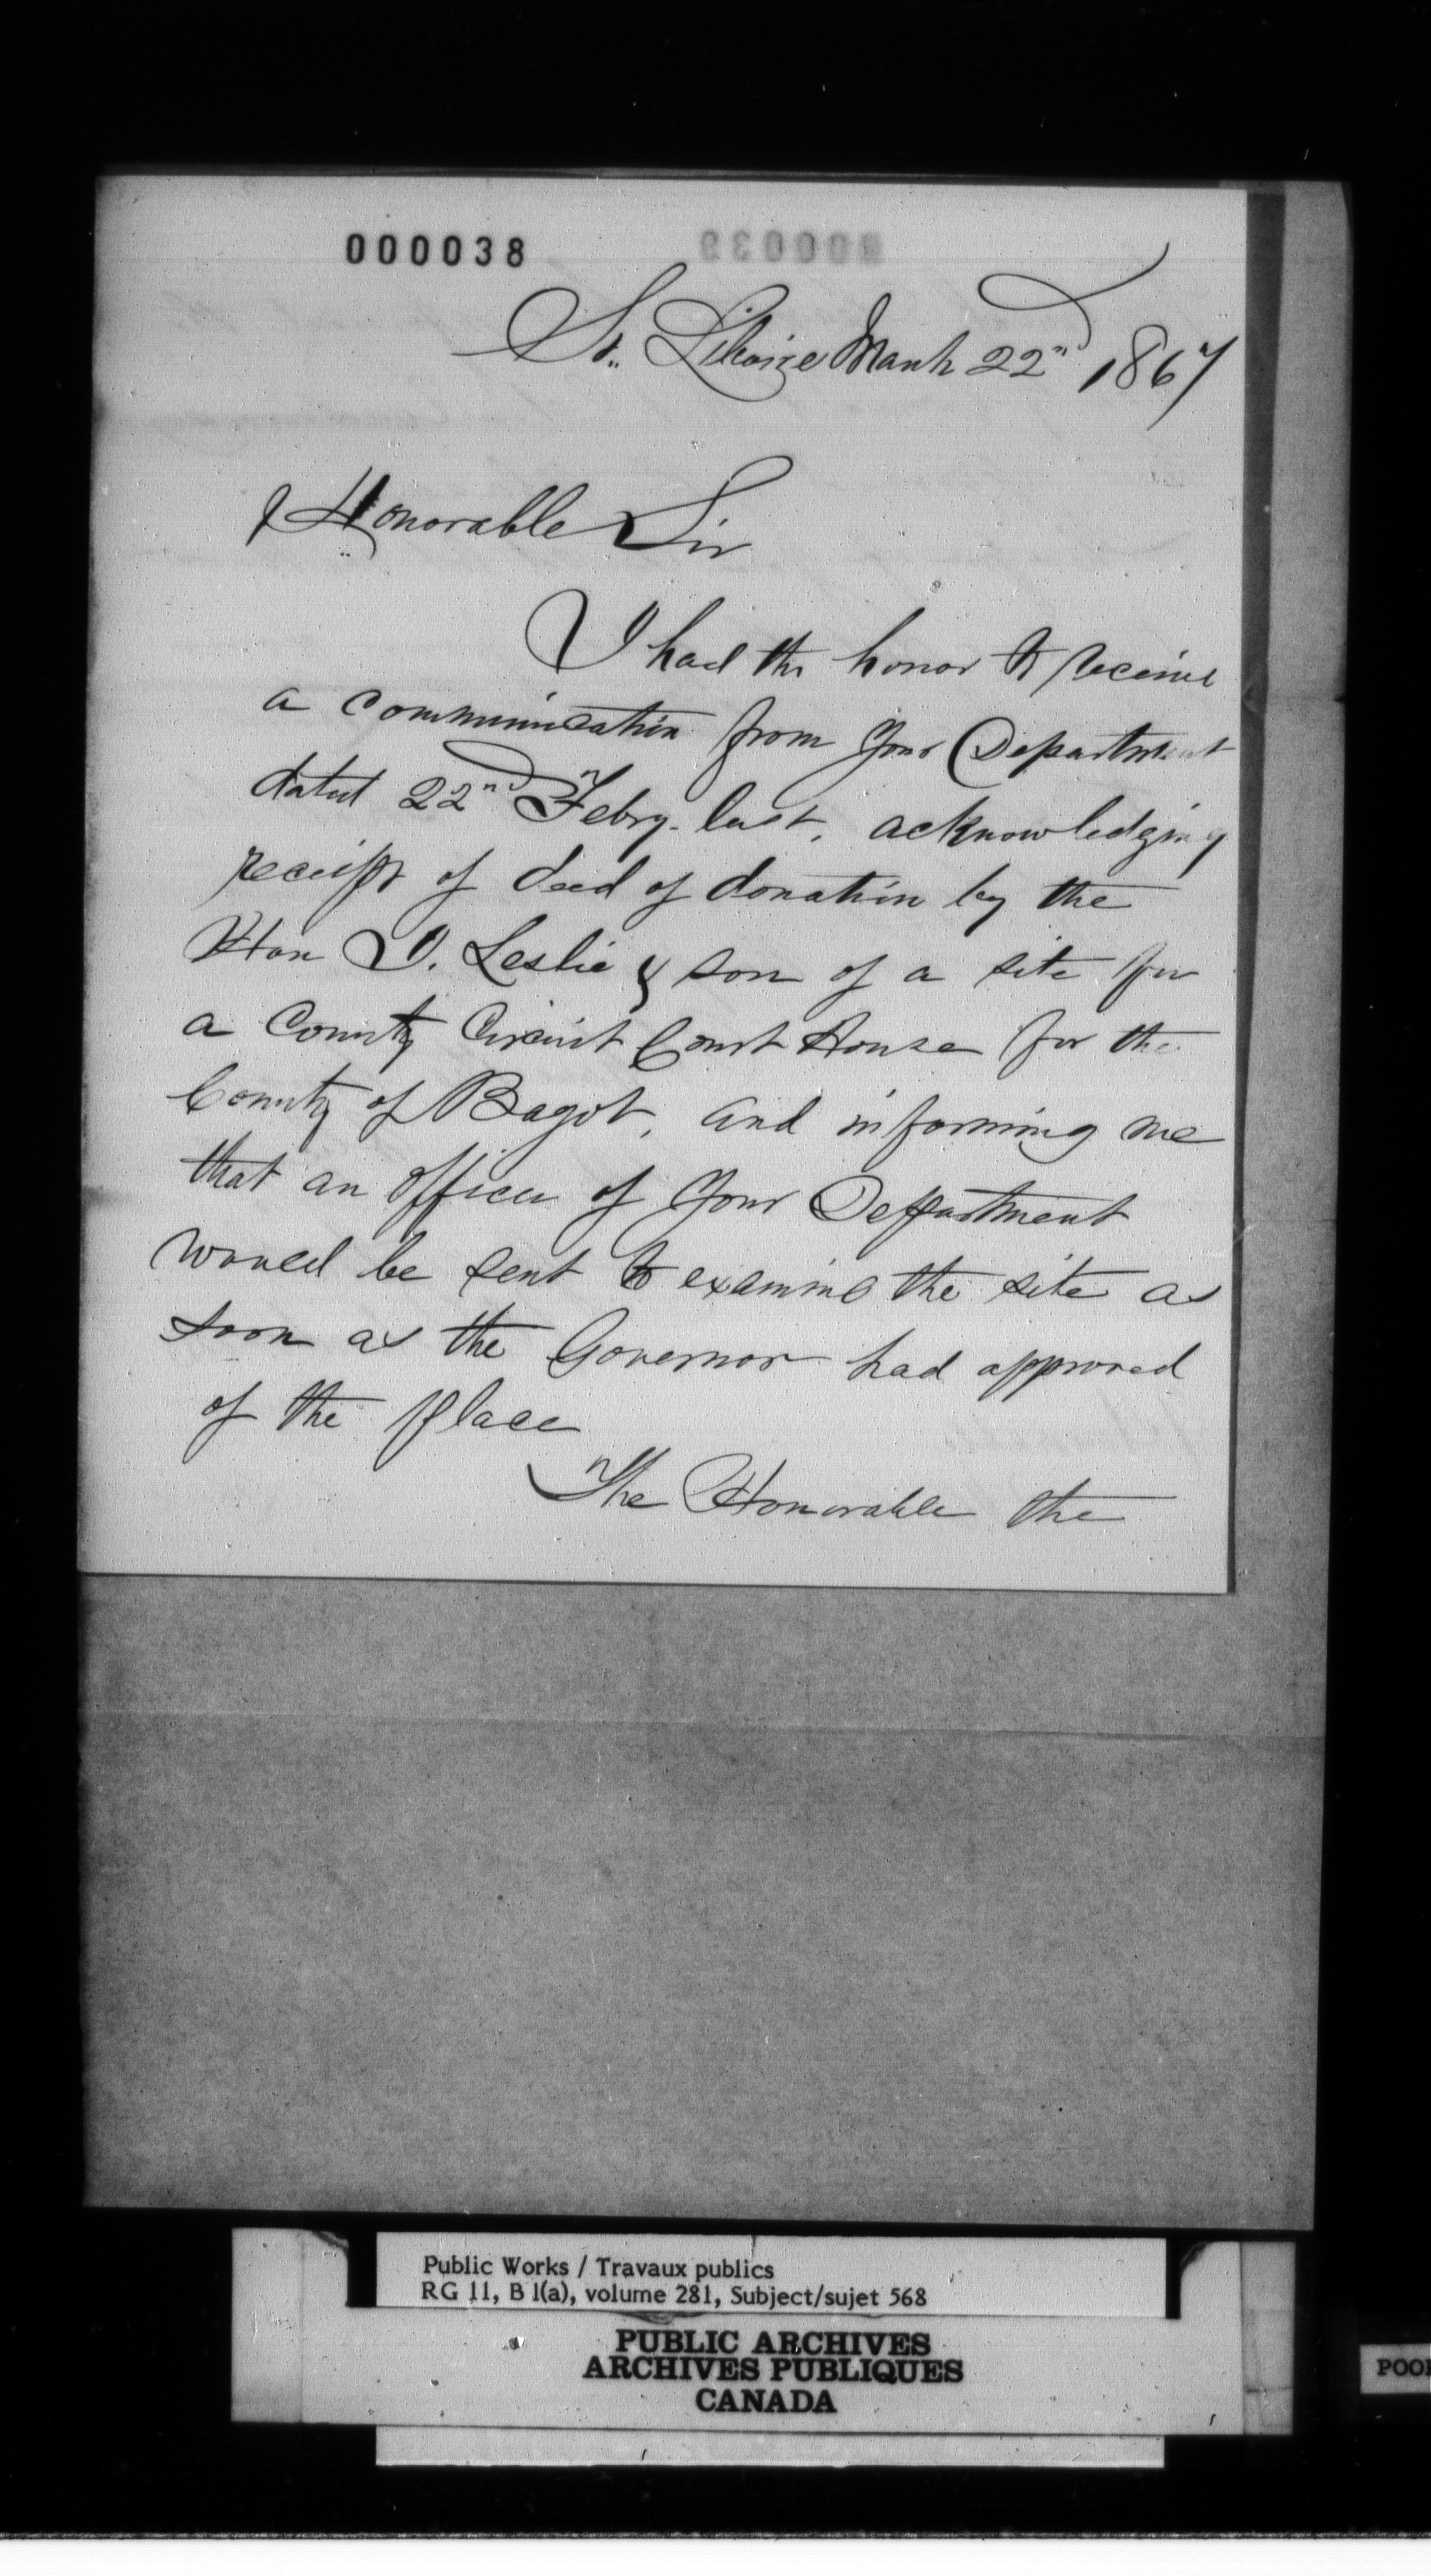 000038
St. Liboire March 22nd 1867
Honorable Sir
I had the honor to receive
a communication from your Department
dated 22nd Febry. last, acknowledging
receipt of deed of donation by the
Hon J. Leslie & son of a site for
a County Circuit Court House for the
County of Bagot, and informing me
that an officer of your Department
would be sent to examine the site as
soon as the Governor had approved
of the place
The Honorable the
Public Works / Travaux publics
RG 11, B 1(a), volume 281, Subject/sujet 568
PUBLIC ARCHIVES
ARCHIVES PUBLIQUES
CANADA